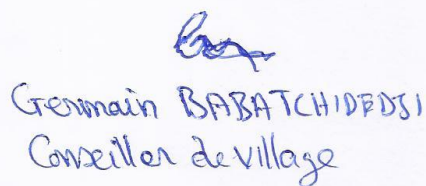 Germain BABATCHIDEDJI
Conseiller de village